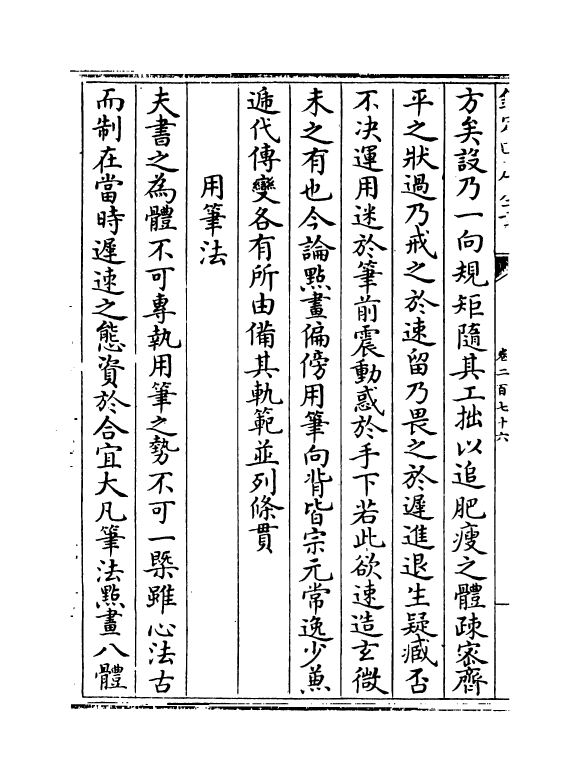 卷二百七十六
方矣設乃一向規矩隨其工拙以追肥瘦之體疎宻齊
平之狀過乃戒之於速留乃畏之於遲進退生疑臧否
不决運用迷於筆前震動惑於手下若此欲速造𤣥微
未之有也今論㸃畫偏傍用筆向背皆宗元常逸少兼
遞代傳變各有所由備其軌範並列條貫
用筆法
夫書之為體不可專執用筆之勢不可一槩雖心法古
而制在當時遲速之態資於合宜大凡筆法㸃畫八體